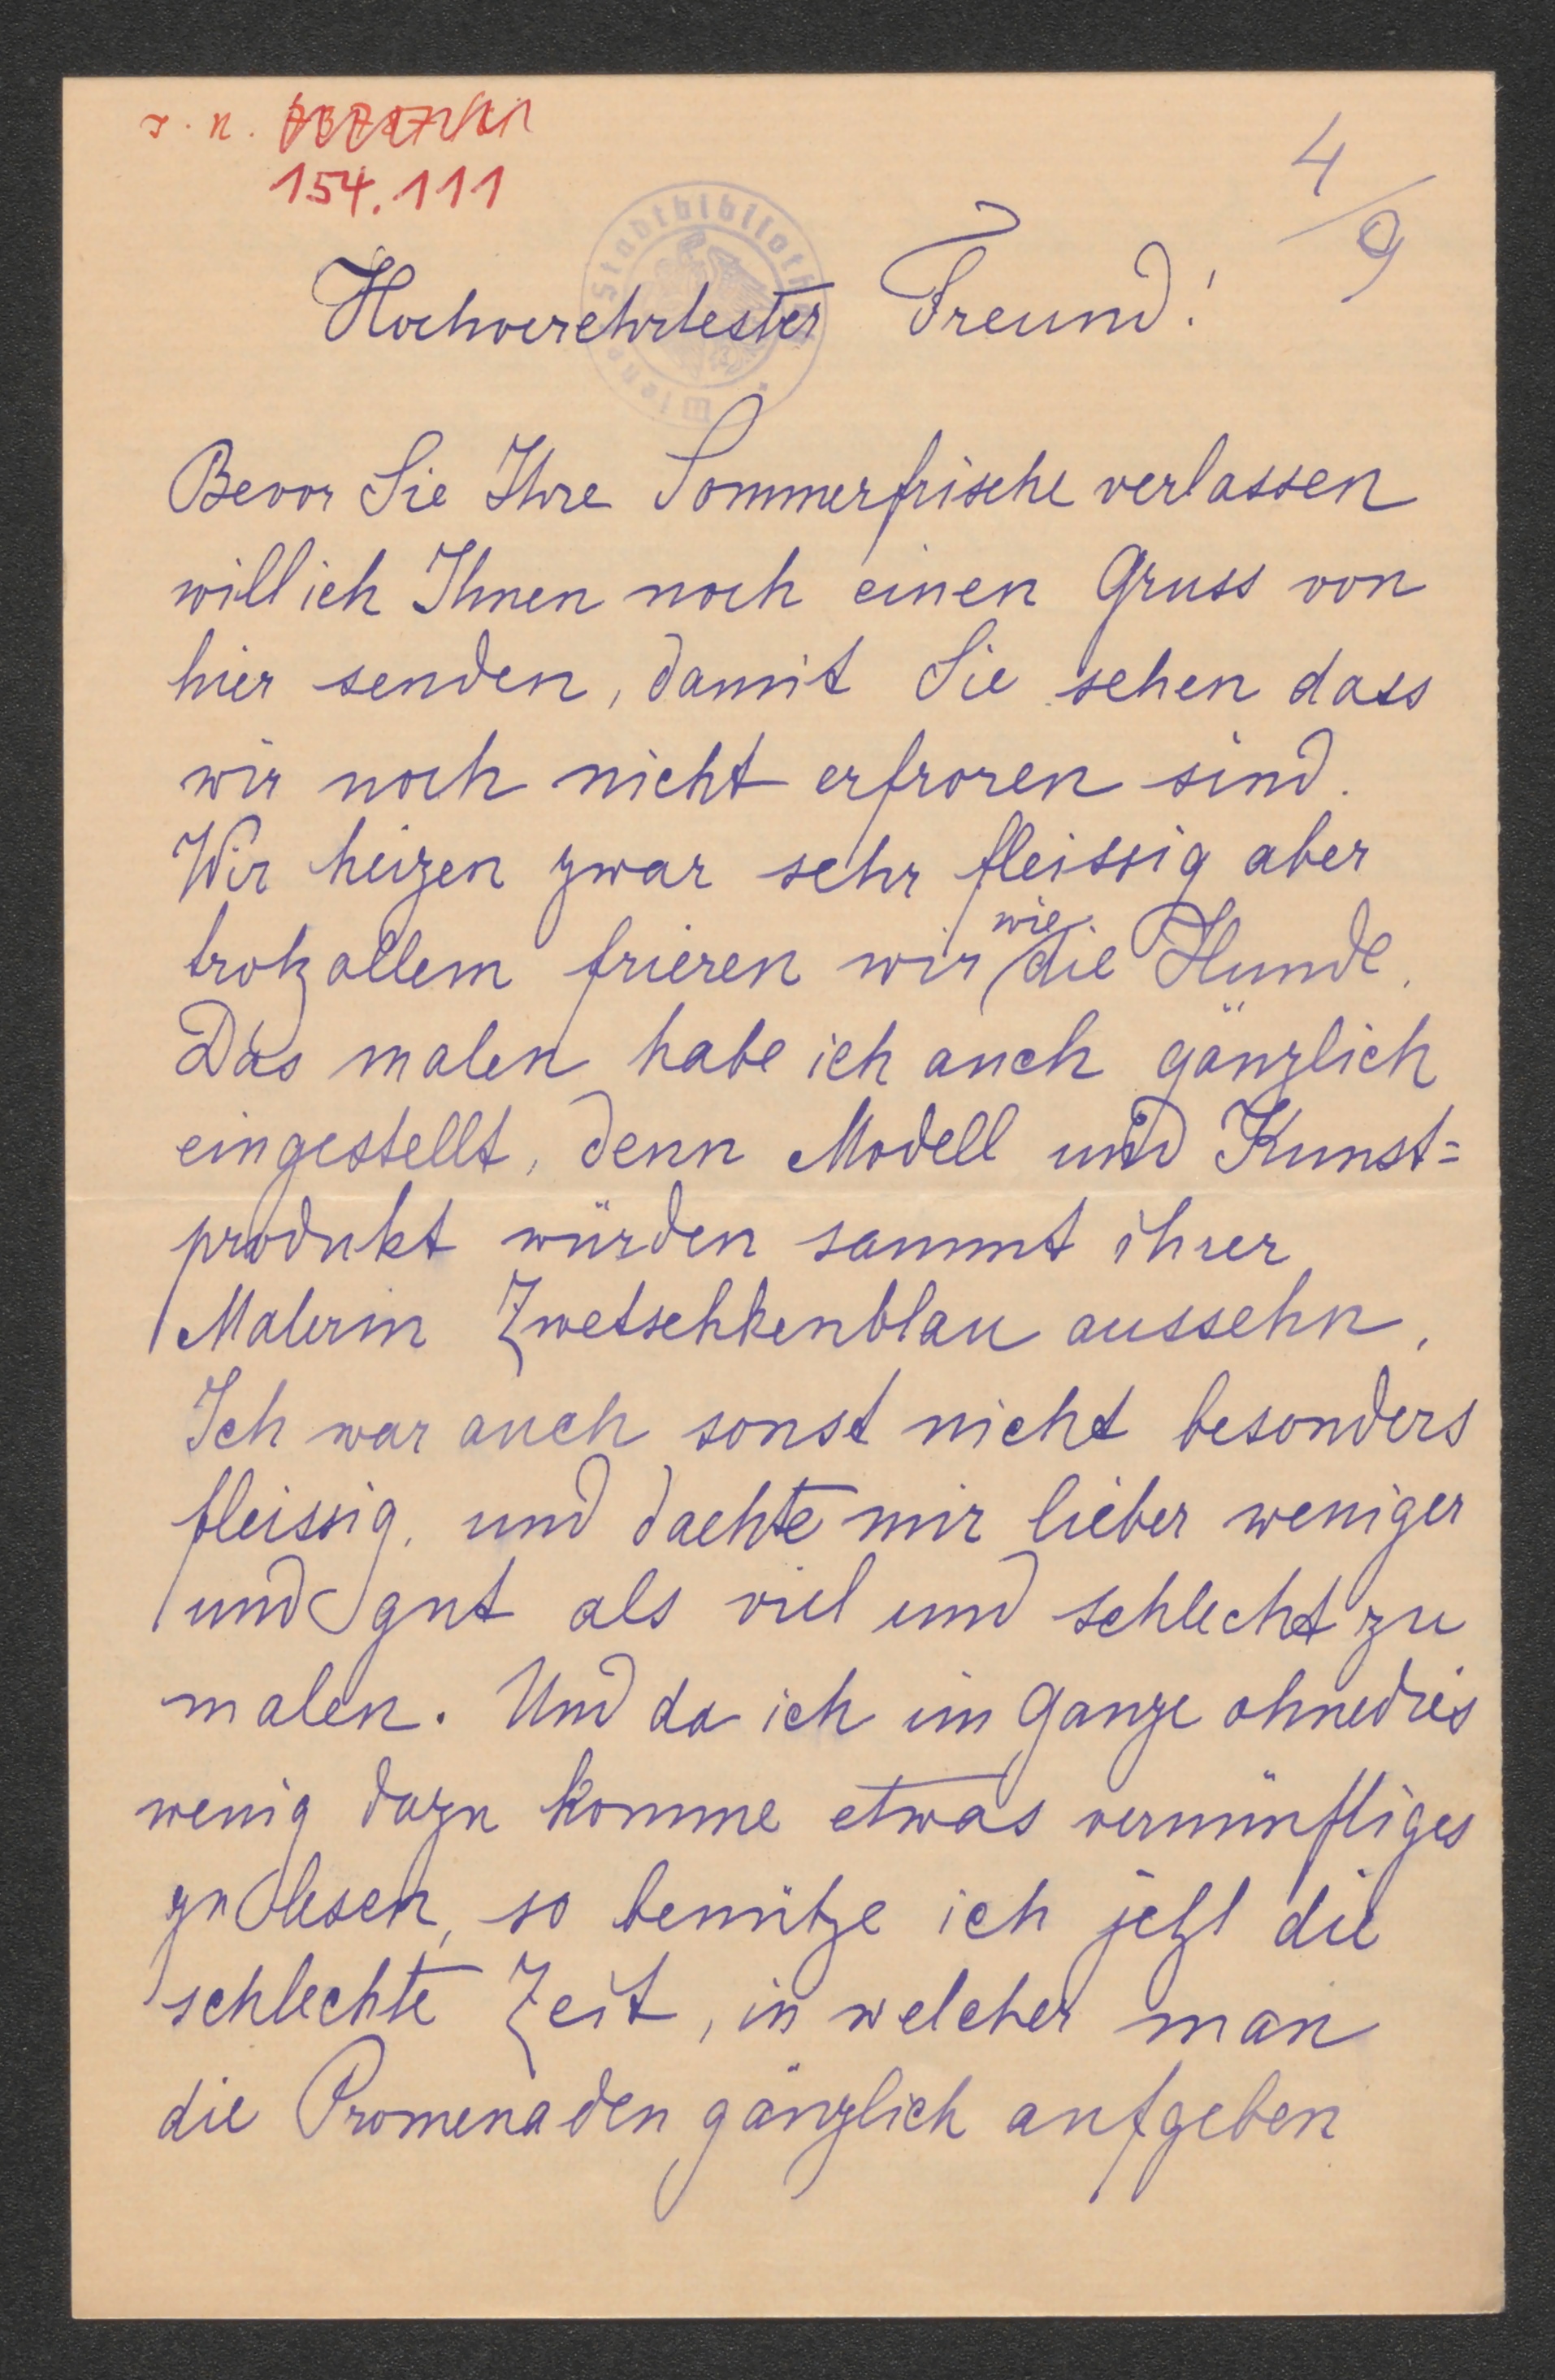 I. N.
154.111
4/9
Wiener Stadtbibliothek
Hochverehrtester Freund!
Bevor Sie Ihre Sommerfrische verlassen
will ich Ihnen noch einen Gruss von
hier senden, damit Sie sehen dass
wir noch nicht erfroren sind.
Wir heizen zwar sehr fleissig aber
trotz allem frieren wir wie die Hunde.
Das malen habe ich auch gänzlich
eingestellt, denn Modell und Kunst=
produkt würden sammt ihrer
Malerin Zwetschkenblau aussehn.
Ich war auch sonst nicht besonders
fleissig, und dachte mir lieber weniger
und gut als viel und schlecht zu
malen. Und da ich im Ganze ohnedies
wenig dazu komme etwas vernünftiges
zu lesen, so benütze ich jetzt die
schlechte Zeit, in welcher man
die Promenaden gänzlich aufgeben